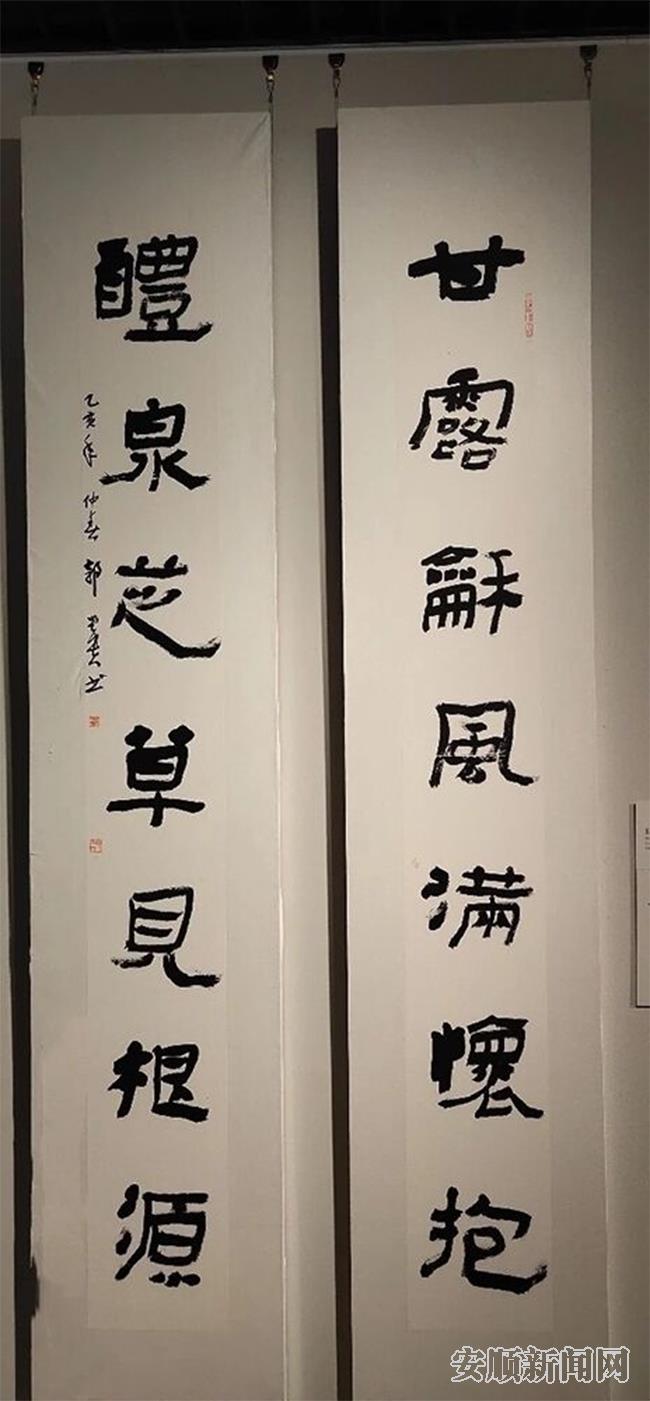 甘露龢風滿懷抱
醴泉芝草見根源
乙亥年 仲春 郭 书
安顺新闻网